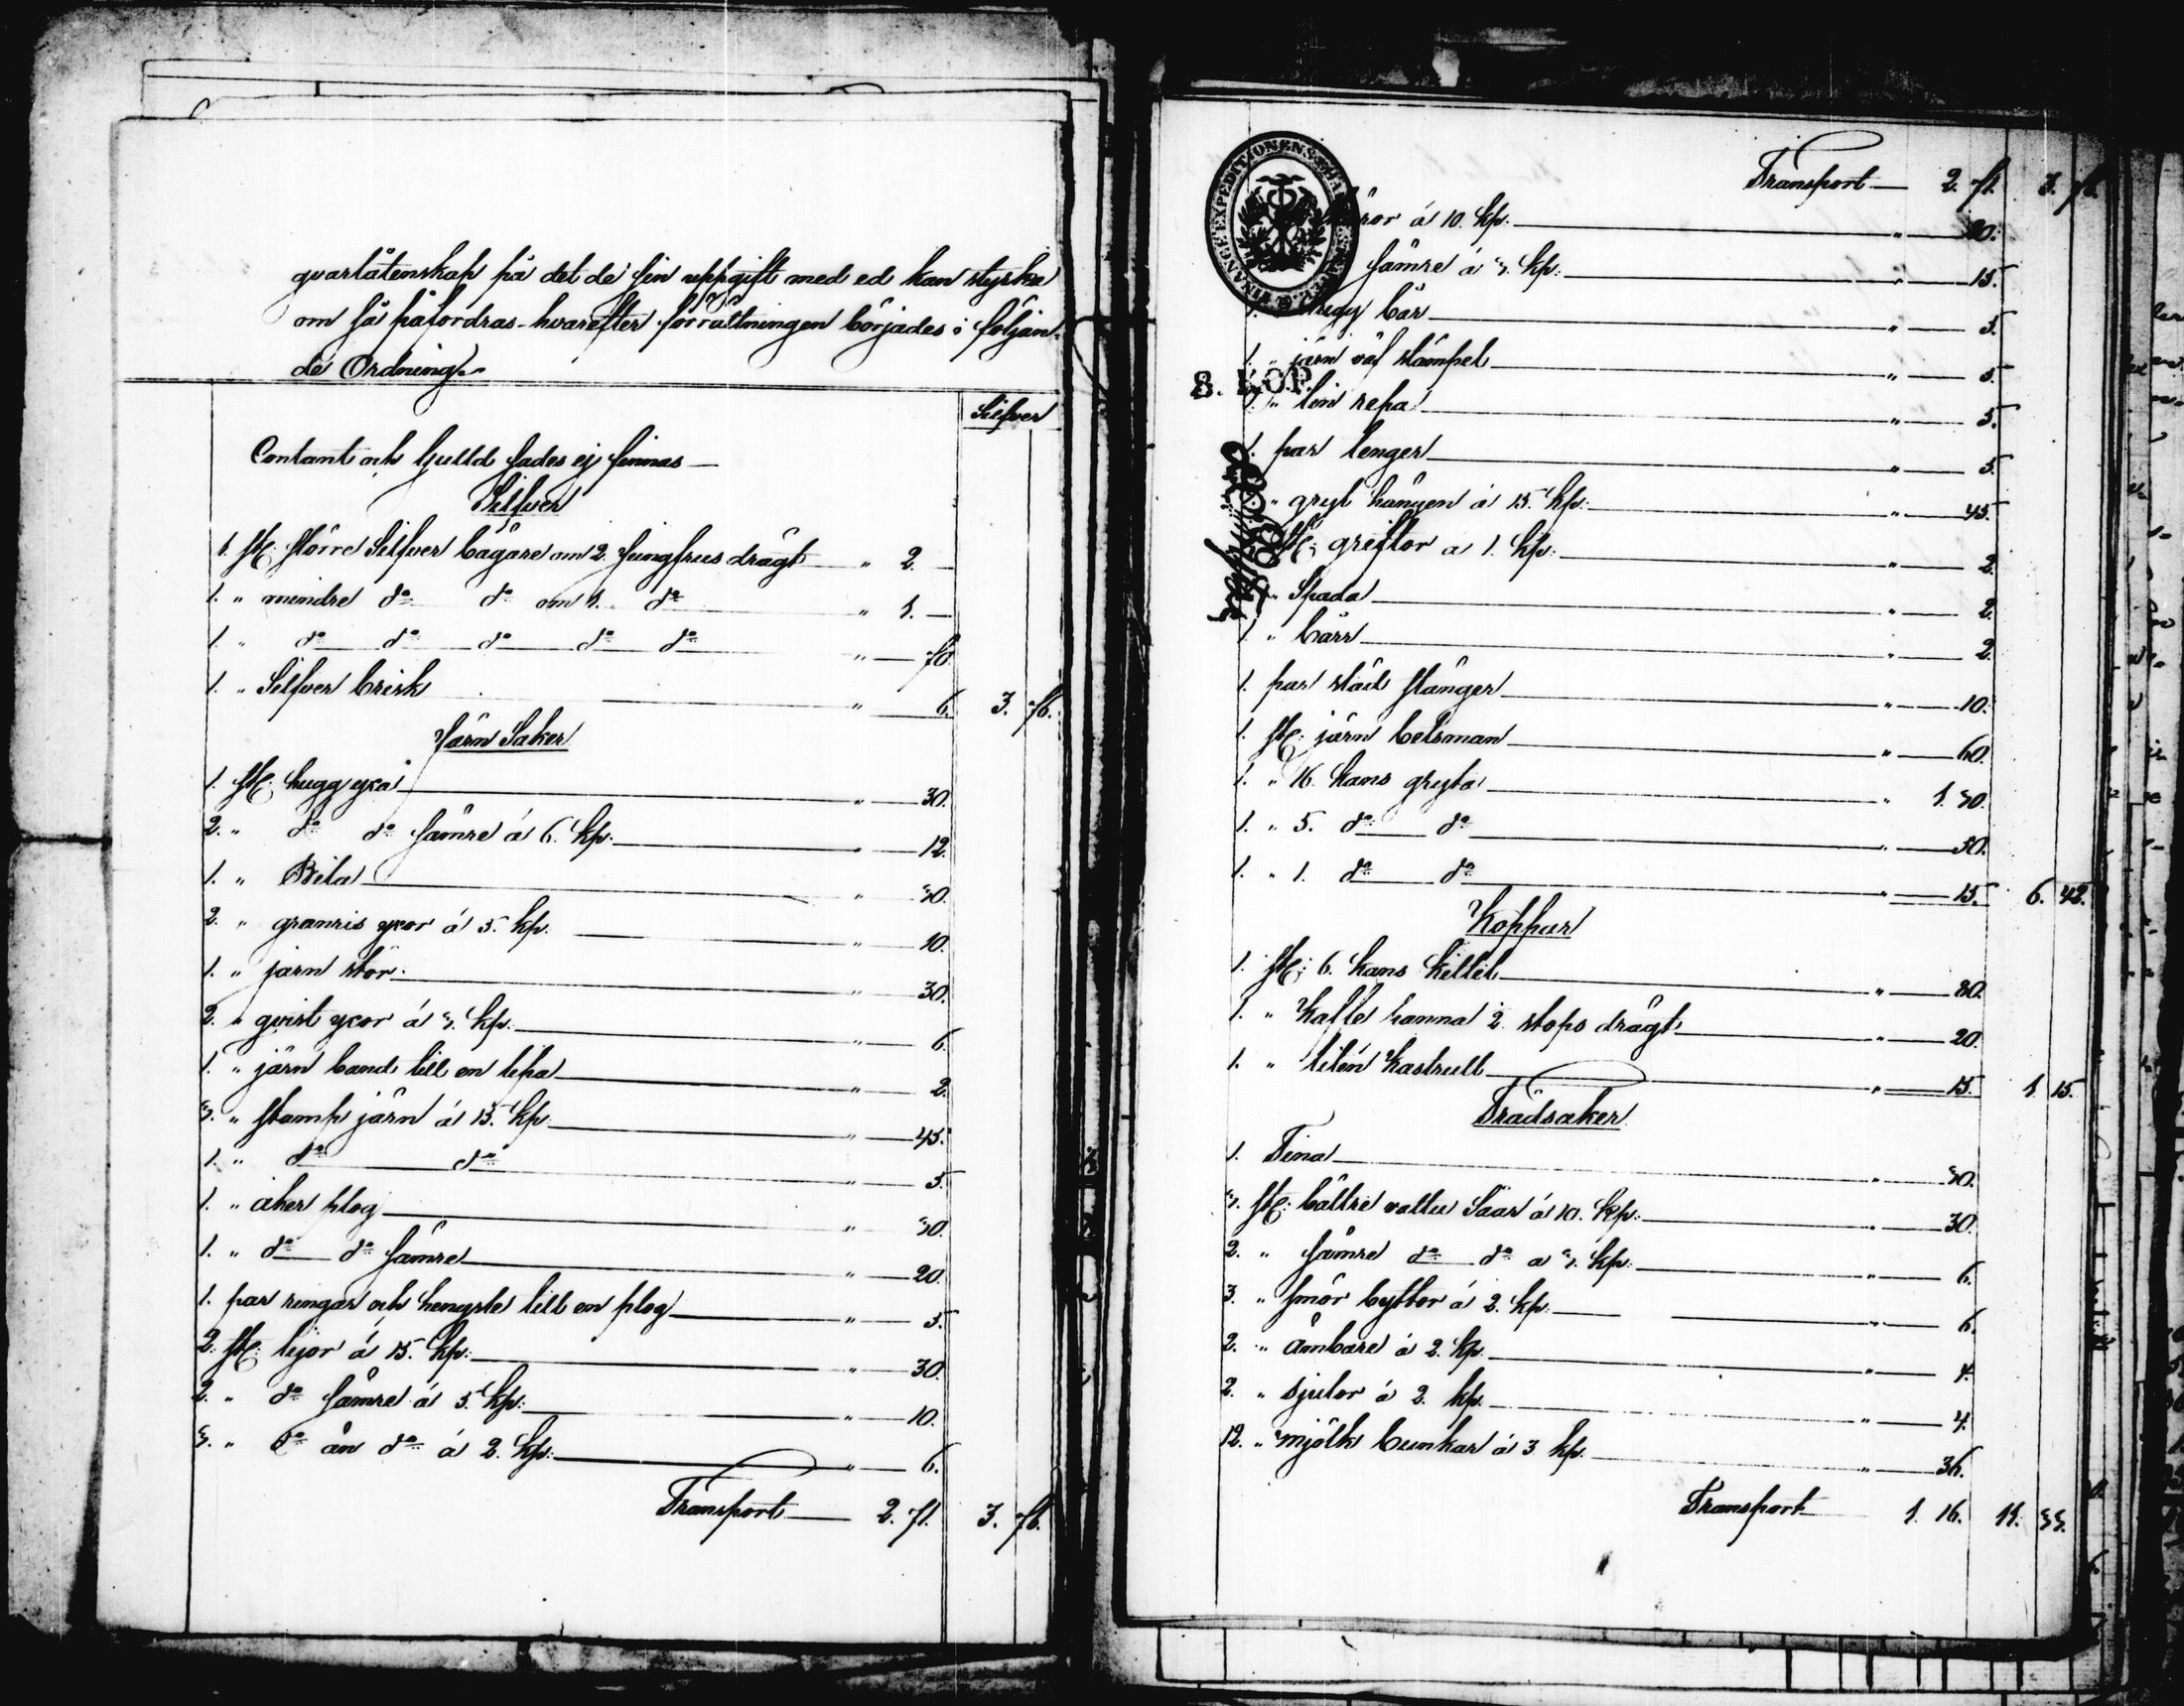 qvarlåtenskap på det de sin uppgift med ed kan styrka
om så påfordras – hvarefter förrättningen börjades i följan-
de Ordning.
Silfver
Contant och Guld sades ej finnas —
Silfver
1. st. större Silfver bägare om 2. jungfrus drägt " 2. —
1. " mindre do do om 1. do " 1. —
1. " do do do do do " — 70.
1. " Silfver brisk " 6. 3. 76.
Järn Saker
1. st. hugg yxa " — 30.
2. " do do sämre á 6. kp. " — 12.
1. " Bila " — 30.
2. " granris yxor á 5. kp. " — 10.
1. " järn stör " — 30.
2. " qvist yxor á 3. kp. " — 6.
1. " järn band till en lipa " — 2.
3. " stamp järn á 15. kp. " — 45.
1. " do do " — 5.
1. " åker plog " — 30.
1. " do do sämre " — 20.
1. par ringar och hengsle till en plog " — 5.
2. st. lijor á 15. kp. " — 30.
2. " do sämre á 5. kp. " — 10.
3. " do än do á 2. kp. " — 6.
Transport — 2. 71. 3. 76.
FINANCE EXPEDITIONENS
8. KOP.
Transport — 2. 71. 3. 76.
á 10. kp. " — 20.
sämre á 3. kp. " — 15.
bår " — 5.
1. " järn väf stämpel " — 5.
1. " lin repa " — 5.
1. par tenger " — 5.
" gryt hängen á 15. kp. " — 45.
st. greflor a 1. kp. " — 2.
" Spada " — 2.
1. " bårr " — 2.
1. par städ stänger " — 10.
1. st. järn betsman " — 60.
1. " 16. kans gryta " 1. 50.
1. " 5. do do " — 50.
1. " 1. do do " — 15. 6. 42.
Koppar
1. st. 6. kans kittel " — 80.
1. " Kaffe kanna 2. stops drägt " — 20.
1. " liten Kastrull " — 15. 1. 15.
Trädsaker
1. Tina " — 30.
3. st. bättre vattu Såar á 10. kp. " — 30.
2. " sämre do do a 3. kp. " — 6.
3. " smör byttor á 2. kp. " — 6.
2. " Ämbare á 2. kp. " — 4.
2. " Sjulor á 2. kp. " — 4.
12. " mjölk bunkar á 3 kp. " — 36.
Transport — 1. 16. 11. 33.